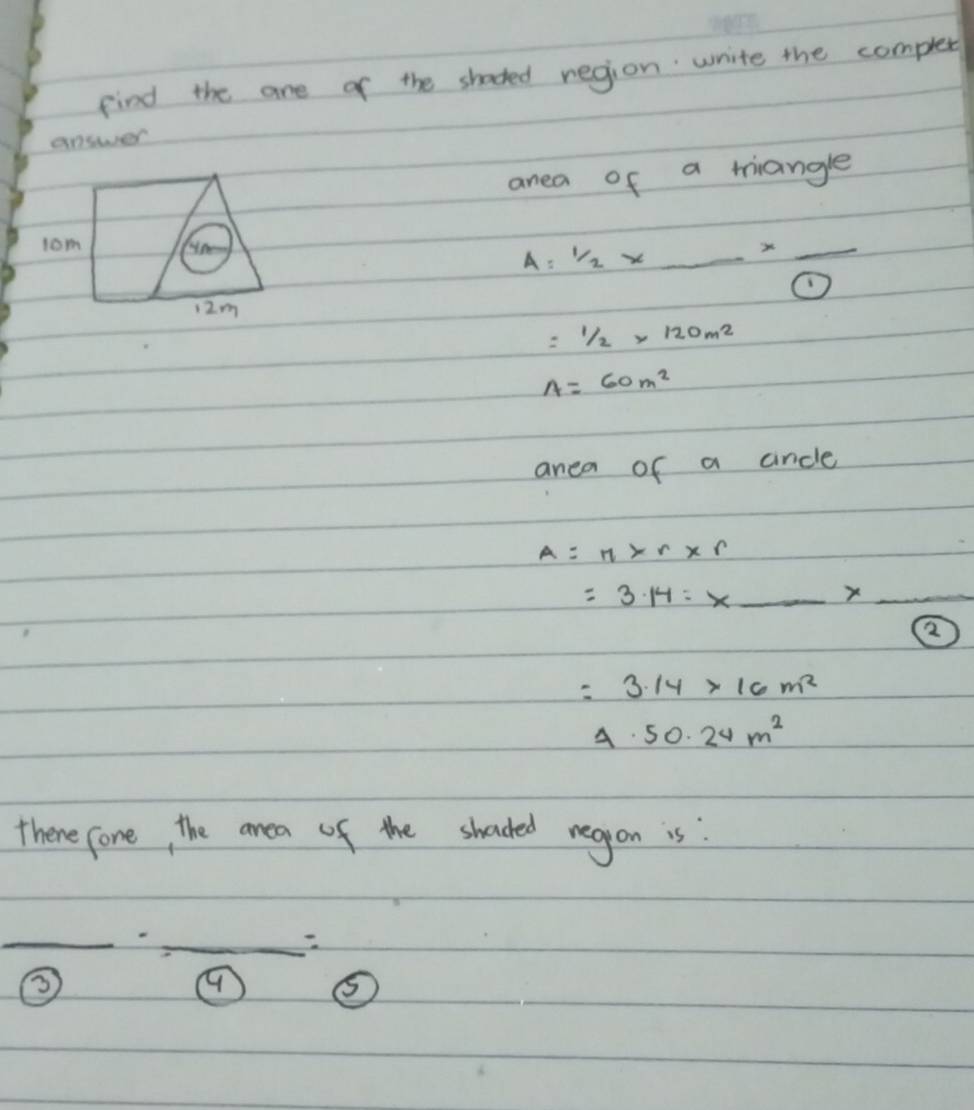 find the are of the shaded region. write the complet
answer
area of a triangle
10m
4m
12m
A = 1/2 x ____ x ____
①
= 1/2 x 120m²
A = 60m²
area of a circle
A = π x r x r
= 3.14 = x ____ x ____
②
= 3.14 x 16 m²
A . 50.24 m²
therefore, the area of the shaded region is:
____ - ____ =
③ ④ ⑤